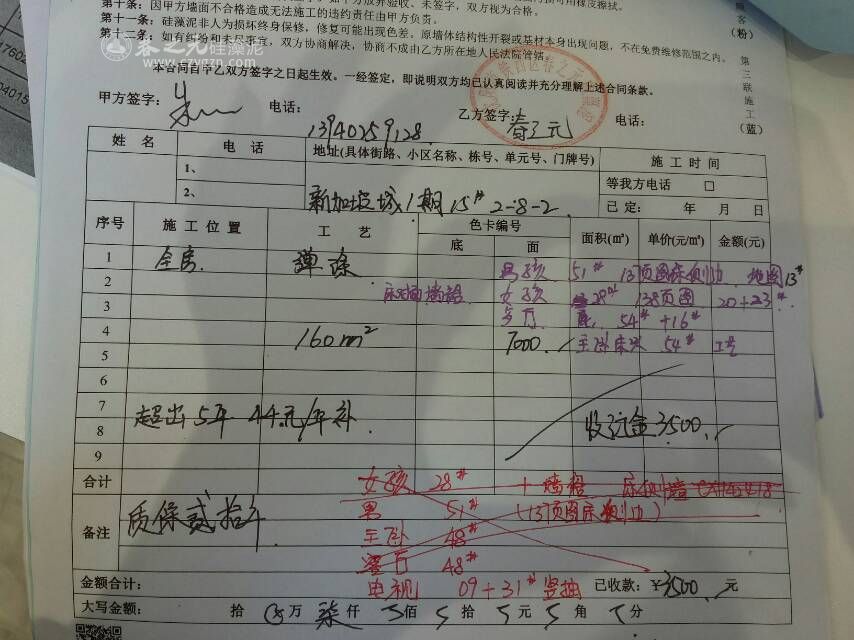 第十条：因甲方墙面不合格造成无法施工的违约责任由甲方负责。
第十一条：硅藻泥非人为损坏终身保修，修复可能出现色差。原墙体结构性开裂或基材本身出现问题，不在免费维修范围之内。
第十二条：如有纠纷和未尽事宜，双方协商解决，协商不成由乙方所在地人民法院管辖。
春之元硅藻泥
www.czygzn.com
本合同自甲乙双方签字之日起生效。一经签定，即说明双方均已认真阅读并充分理解上述合同条款。
甲方签字： 电话： 13940259128 乙方签字： 春之元 电话：
姓名 电话 地址(具体街路、小区名称、栋号、单元号、门牌号) 施工时间
1、 等我方电话 □
2、 新加坡城1期 15# 2-8-2 已定： 年 月 日
序号 施工位置 工艺 色卡编号 面积(㎡) 单价(元/㎡) 金额(元)
底 面
1 全房 弹涂 男孩 51# 137页图床侧边 地图13#
2 女孩 28# 138页图 20+23#
3 客厅 54# +16#
4 160m² 7000 主卧床头 54#
5
6
7 超出5平 44元/平补
8 收订金3500
9
合计 女孩 28# + 墙裙
男 51# (137页图床侧边)
备注 质保贰拾年
主卧 48#
客厅 48#
电视 09+31# 竖抽
金额合计： 已收款：¥3500 元
大写金额： 拾 万 柒仟 佰 拾 元 角 分
第三联施工(蓝)
(粉)